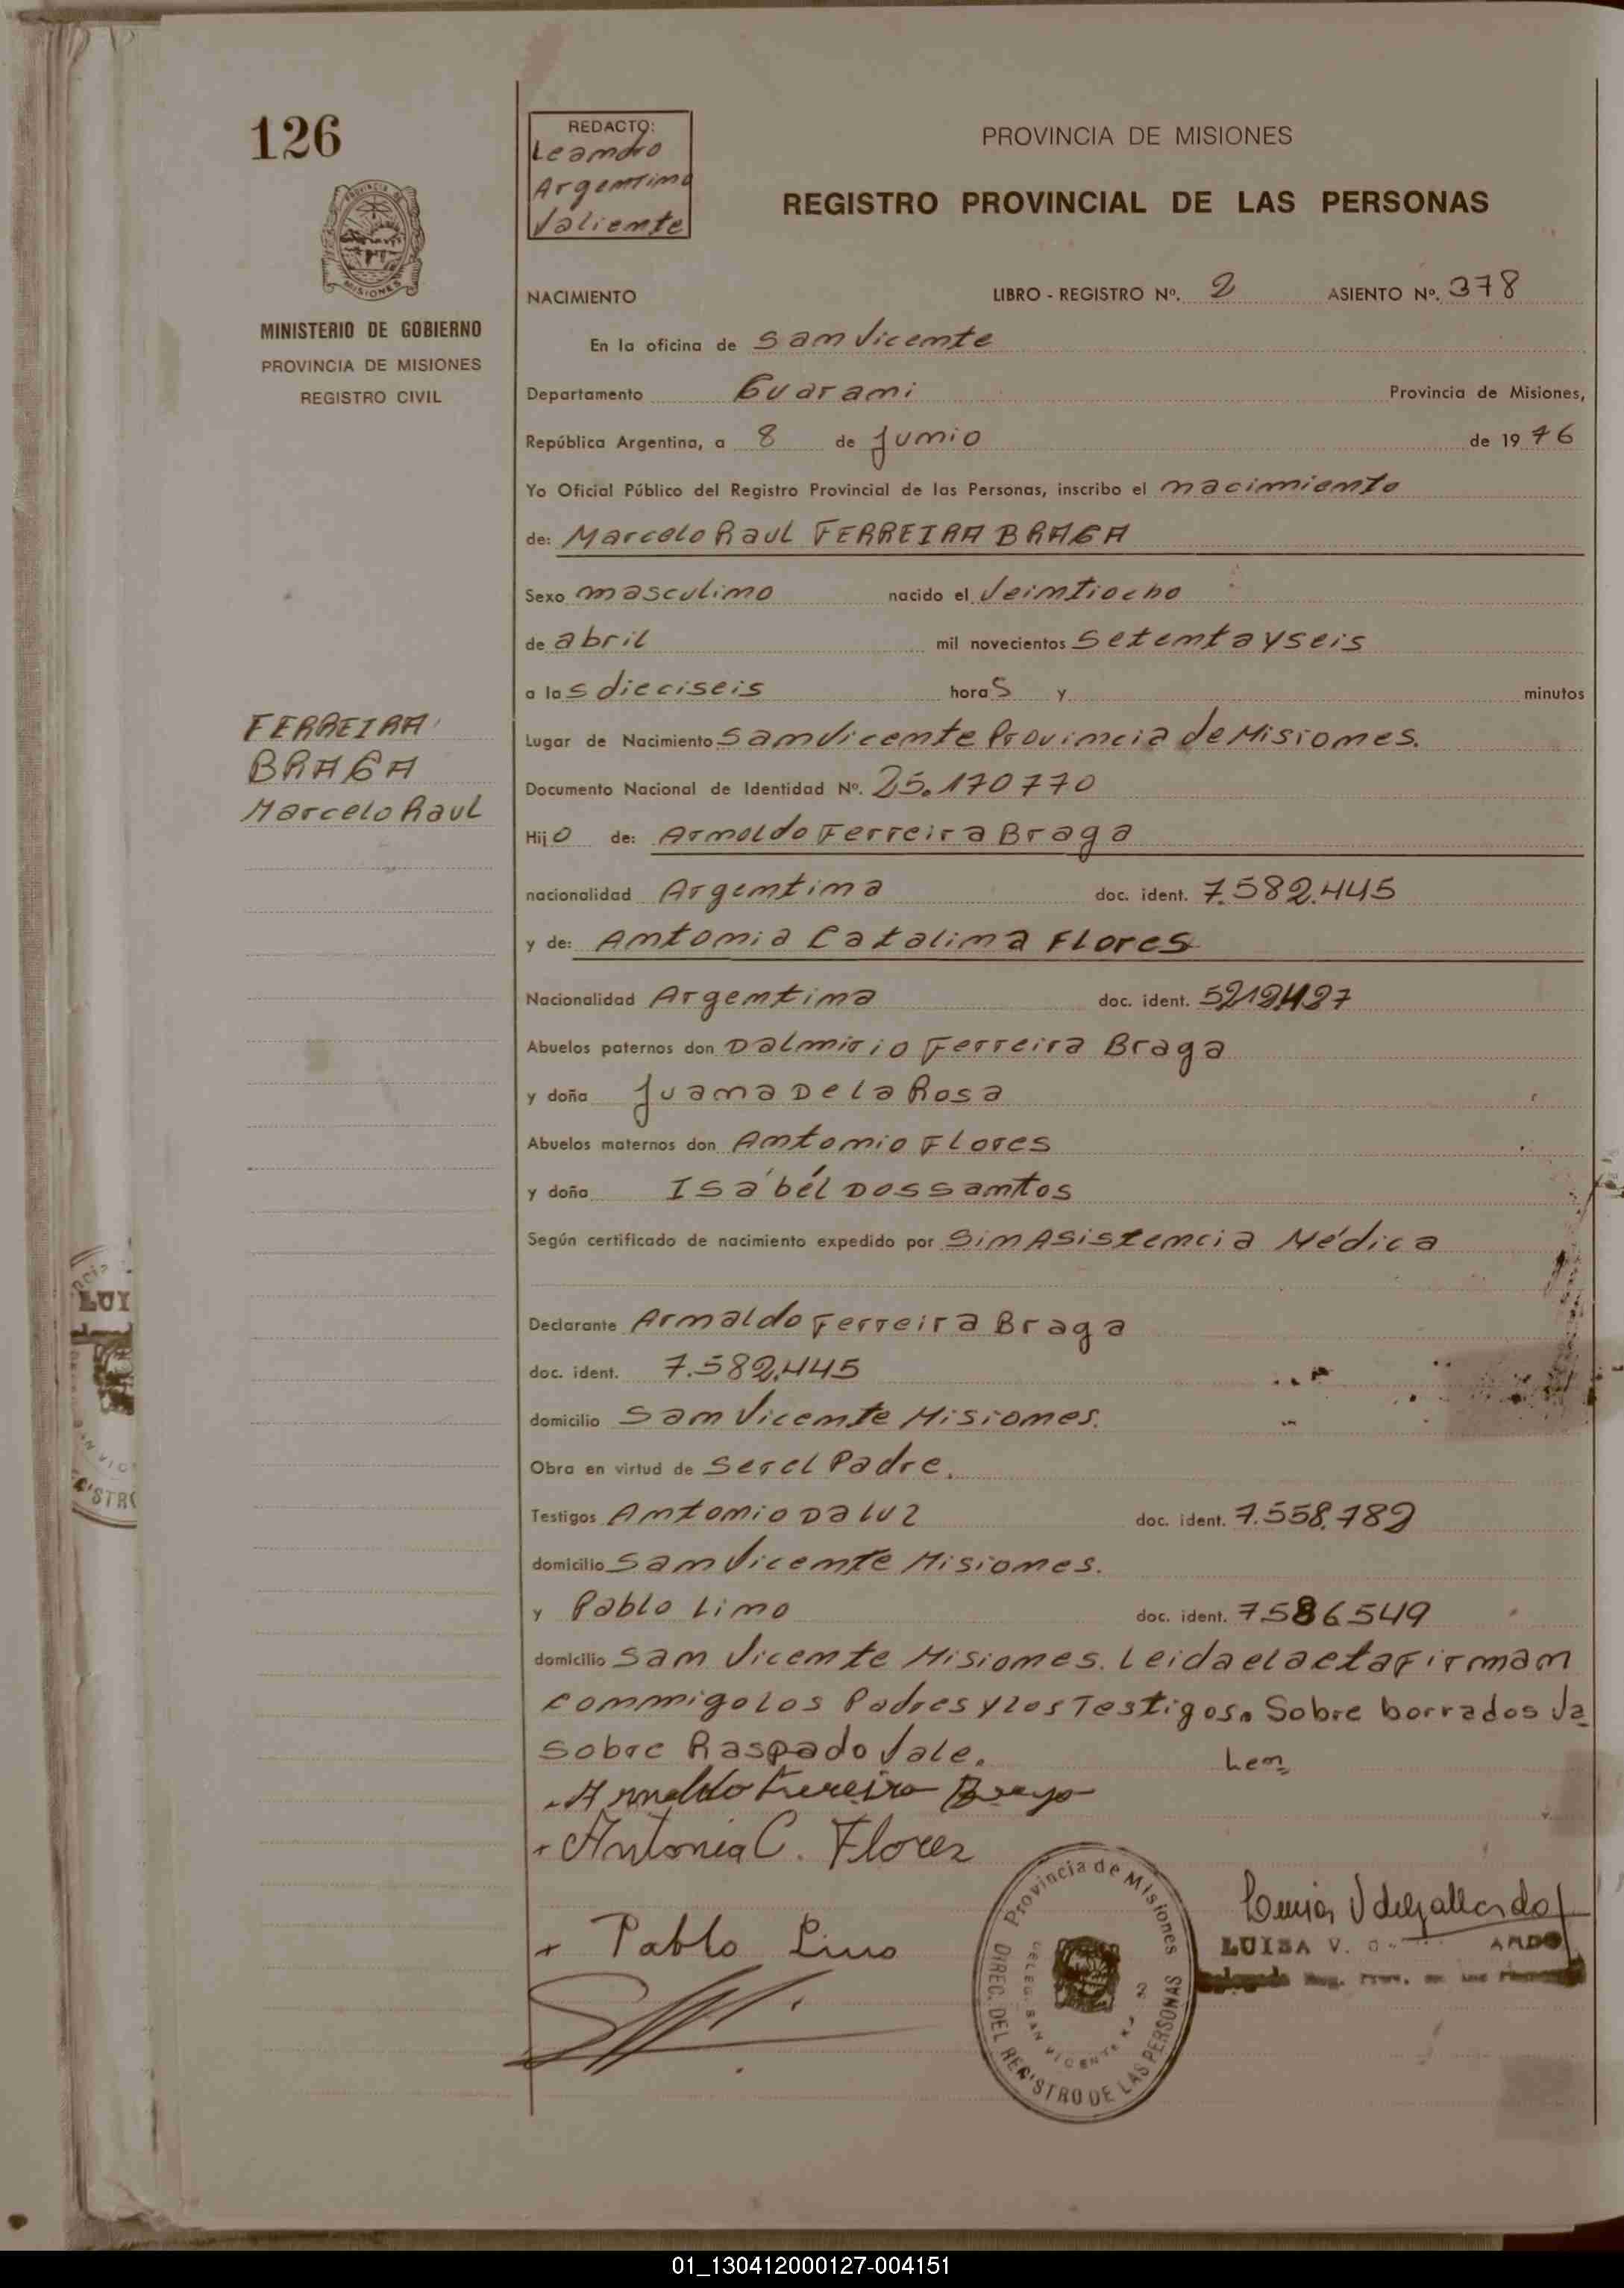 126
REDACTO:
Leandro
Argentino
Valiente
PROVINCIA DE MISIONES
REGISTRO PROVINCIAL DE LAS PERSONAS
PROVINCIA DE MISIONES
MINISTERIO DE GOBIERNO
PROVINCIA DE MISIONES
REGISTRO CIVIL
NACIMIENTO LIBRO - REGISTRO Nº. 2 ASIENTO Nº. 378
En la oficina de San Vicente
Departamento Guarani Provincia de Misiones,
República Argentina, a 8 de Junio de 1976
Yo Oficial Público del Registro Provincial de las Personas, inscribo el nacimiento
de: Marcelo Raul FERREIRA BRAGA
Sexo masculino nacido el Veintiocho
de abril mil novecientos Setenta y seis
a las dieciseis horas y minutos
FERREIRA
BRAGA
Marcelo Raul
Lugar de Nacimiento San Vicente Provincia de Misiones.
Documento Nacional de Identidad Nº. 25.170770
Hijo de: Arnoldo Ferreira Braga
nacionalidad Argentina doc. ident. 7.582.445
y de: Antonia Catalina Flores
Nacionalidad Argentina doc. ident.
Abuelos paternos don Dalmirio Ferreira Braga
y doña Juana De la Rosa
Abuelos maternos don Antonio Flores
y doña Isabél Dos Santos
Según certificado de nacimiento expedido por Sin Asistencia Médica
Declarante Arnaldo Ferreira Braga
doc. ident. 7.582.445
domicilio San Vicente Misiones.
Obra en virtud de Ser el Padre.
Testigos Antonio Da luz doc. ident. 7.558.782
domicilio San Vicente Misiones.
y Pablo Lino doc. ident. 7586549
domicilio San Vicente Misiones. Leida el acta Firman
conmigo los Padres y los Testigos. Sobre borrados Va
Sobre Raspado Vale. Len
Arnaldo Ferreira Braga
Antonia C. Flores
Pablo Lino
Provincia de Misiones
DIREC. DEL REGISTRO DE LAS PERSONAS
DELEG. SAN VICENTE
Luisa V de Gallardo
LUISA V.
LUI
01_130412000127-004151